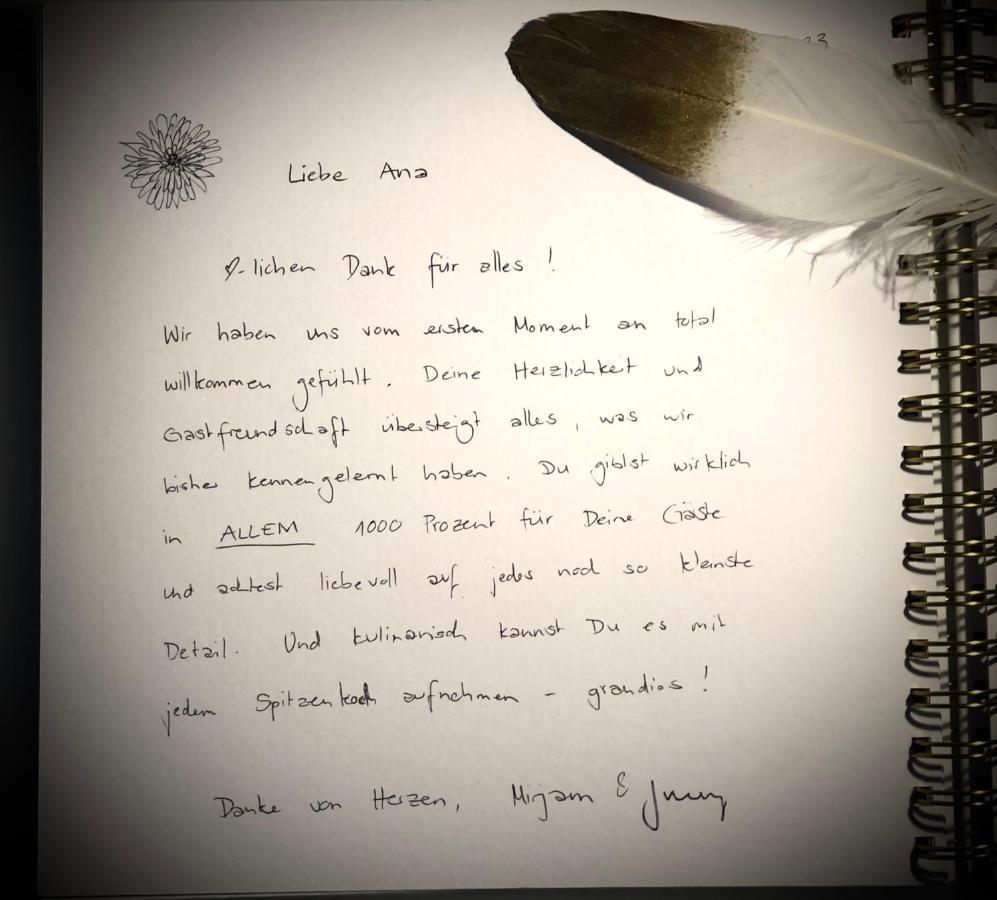 23
Liebe Ana
♡-lichen Dank für alles !
Wir haben uns vom ersten Moment an total
willkommen gefühlt. Deine Herzlichkeit und
Gastfreundschaft übersteigt alles, was wir
bisher kennengelernt haben. Du gibst wirklich
in ALLEM 1000 Prozent für Deine Gäste
und achtest liebevoll auf jedes noch so kleinste
Detail. Und kulinarisch kannst Du es mit
jedem Spitzenkoch aufnehmen - grandios !
Danke von Herzen, Mirjam &